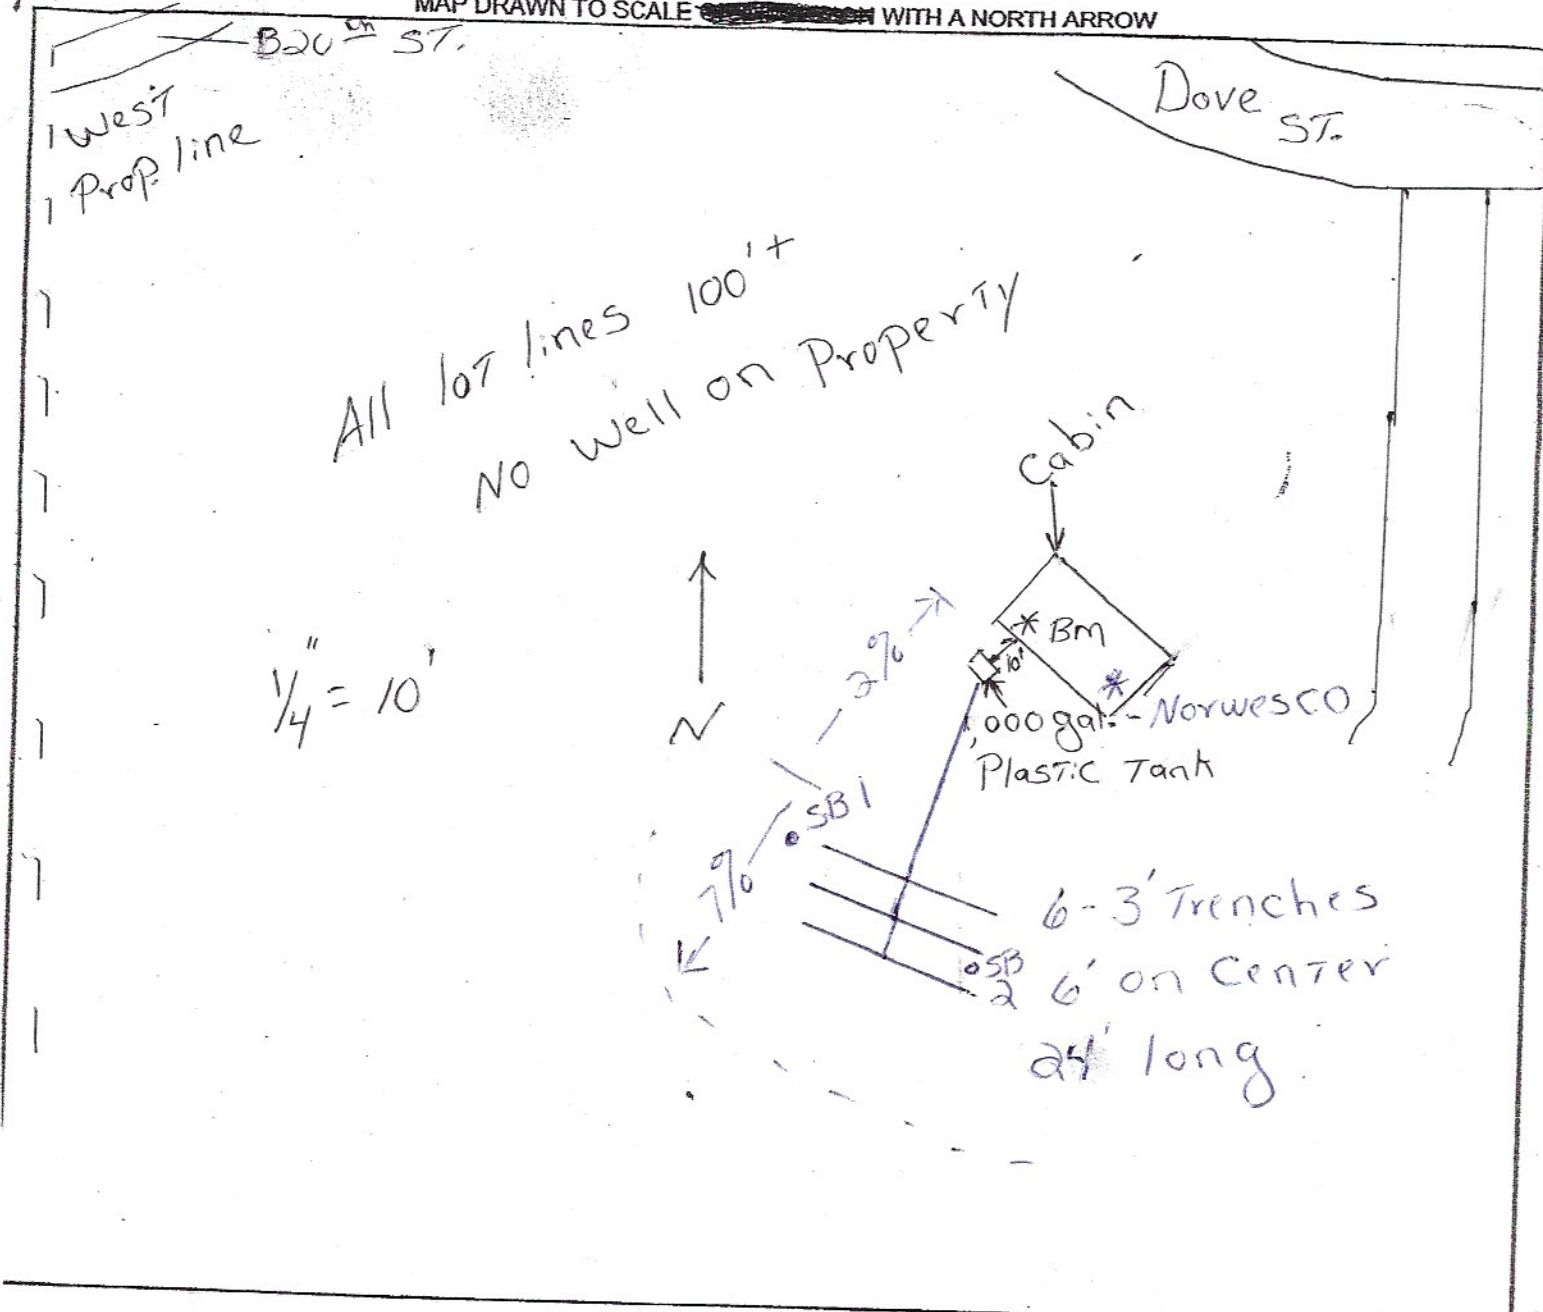 MAP DRAWN TO SCALE WITH A NORTH ARROW
B20th ST.
Dove ST.
West
Prop. line
All lot lines 100'+
No Well on Property
Cabin
1/4" = 10'
N
2%
BM
10'
1,000 gal. - Norwesco
Plastic Tank
SB1
7%
6-3' Trenches
SB 2
6' on Center
24' long